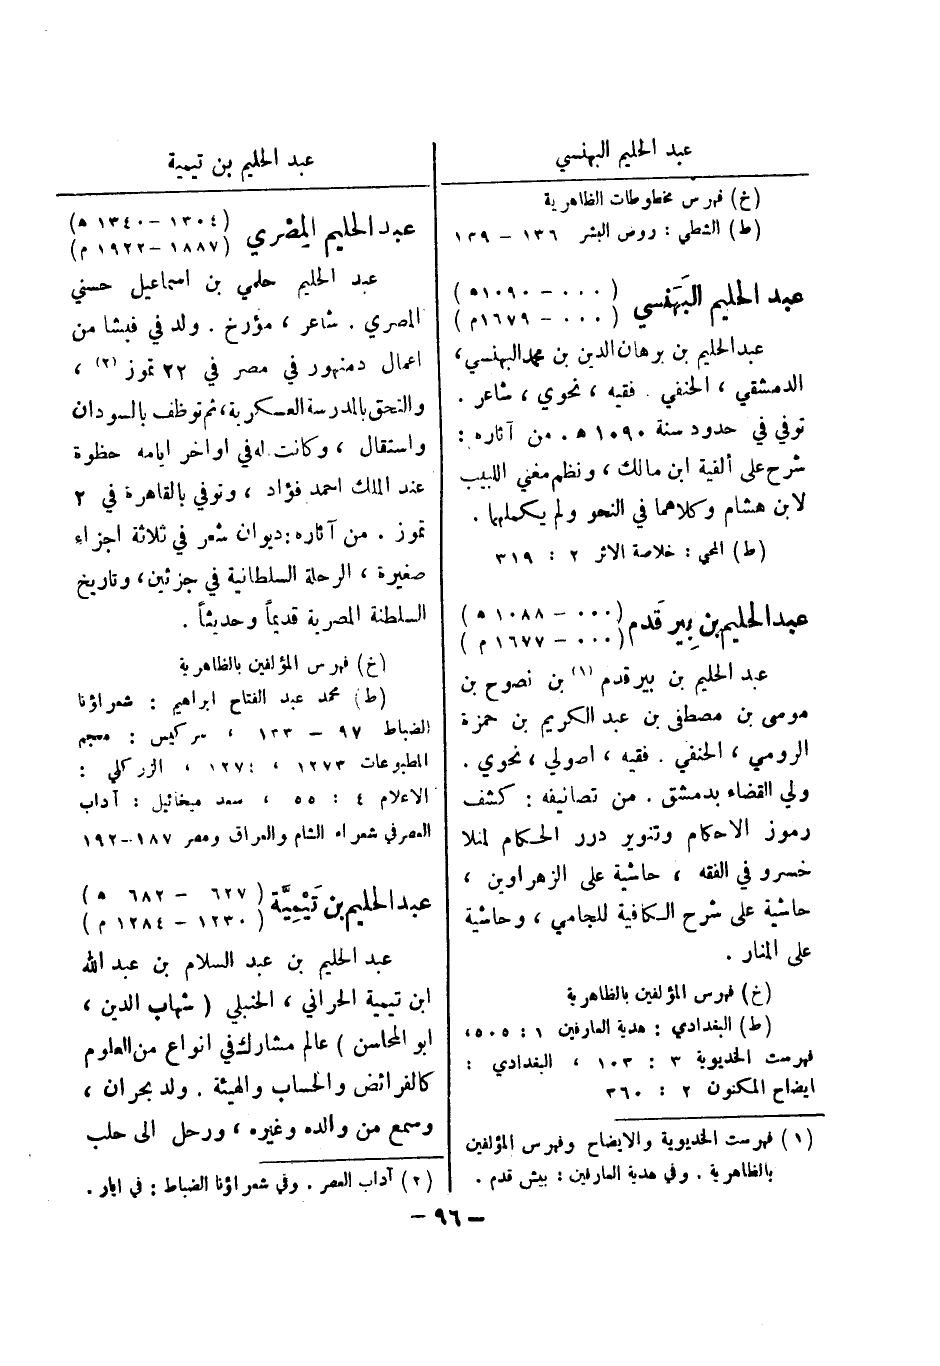 عبد الحليم البهنسي
(خ) فهرس مخطوطات الظاهرية
(ط) الشطي : روض البشر ١٣٦ – ١٣٩
عبد الحليم البَهَنسي (٠٠٠ – ١٠٩٠ ه)
(٠٠٠ – ١٦٧٩ م)
عبد الحليم بن برهان الدين بن محمد البهنسي ،
الدمشقي ، الحنفي . فقيه ، نحوي ، شاعر .
توفي في حدود سنة ١٠٩٠ ه . من آثاره :
شرح على ألفية ابن مالك ، ونظم مغني اللبيب
لابن هشام وكلاهما في النحو ولم يكملها .
(ط) المحبي : خلاصة الاثر ٢ : ٣١٩
عبد الحليم بن بِير قَدم (٠٠٠ – ١٠٨٨ ه)
(٠٠٠ – ١٦٧٧ م)
عبد الحليم بن بير قدم (١) بن نصوح بن
موسى بن مصطفى بن عبد الكريم بن حمزة
الرومي ، الحنفي . فقيه ، اصولي ، نحوي .
ولي القضاء بدمشق . من تصانيفه : كشف
رموز الاحكام وتنوير درر الحكام لمنلا
خسرو في الفقه ، حاشية على الزهراوين ،
حاشية على شرح الكافية للجامي ، وحاشية
على المنار .
(خ) فهرس المؤلفين بالظاهرية
(ط) البغدادي : هدية العارفين ١ : ٥٠٥ ،
فهرست الخديوية ٣ : ١٠٣ ، البغدادي :
ايضاح المكنون ٢ : ٣٦٠
(١) فهرست الخديوية والايضاح وفهرس المؤلفين
بالظاهرية . وفي هدية العارفين : بيش قدم .
عبد الحليم بن تيمية
عبد الحليم المِصْري (١٣٠٤ – ١٣٤٠ ه)
(١٨٨٧ – ١٩٢٢ م)
عبد الحليم حلمي بن اسماعيل حسني
المصري . شاعر ، مؤرخ . ولد في فيشا من
اعمال دمنهور في مصر في ٢٢ تموز (٢) ،
والتحق بالمدرسة العسكرية ، ثم توظف بالسودان
واستقال ، وكانت له في اواخر ايامه حظوة
عند الملك احمد فؤاد ، وتوفي بالقاهرة في ٢
تموز . من آثاره : ديوان شعر في ثلاثة اجزاء
صغيرة ، الرحلة السلطانية في جزئين ، وتاريخ
السلطنة المصرية قديماً وحديثاً .
(خ) فهرس المؤلفين بالظاهرية
(ط) محمد عبد الفتاح ابراهيم : شعراؤنا
الضباط ٩٧ – ١٣٣ ، سركيس : معجم
المطبوعات ١٢٧٣ ، ١٢٧٤ ، الزركلي :
الاعلام ٤ : ٥٥ ، سعد ميخائيل : آداب
العصر في شعراء الشام والعراق ومصر ١٨٧–١٩٢
عبد الحليم بن تَيْمِيَّة (٦٢٧ – ٦٨٢ ه)
(١٢٣٠ – ١٢٨٤ م)
عبد الحليم بن عبد السلام بن عبد الله
ابن تيمية الحراني ، الحنبلي ( شهاب الدين ،
ابو المحاسن ) عالم مشارك في انواع من العلوم
كالفرائض والحساب والهيئة . ولد بحران ،
وسمع من والده وغيره ، ورحل الى حلب
(٢) آداب العصر . وفي شعراؤنا الضباط : في ايار .
– ٩٦ –